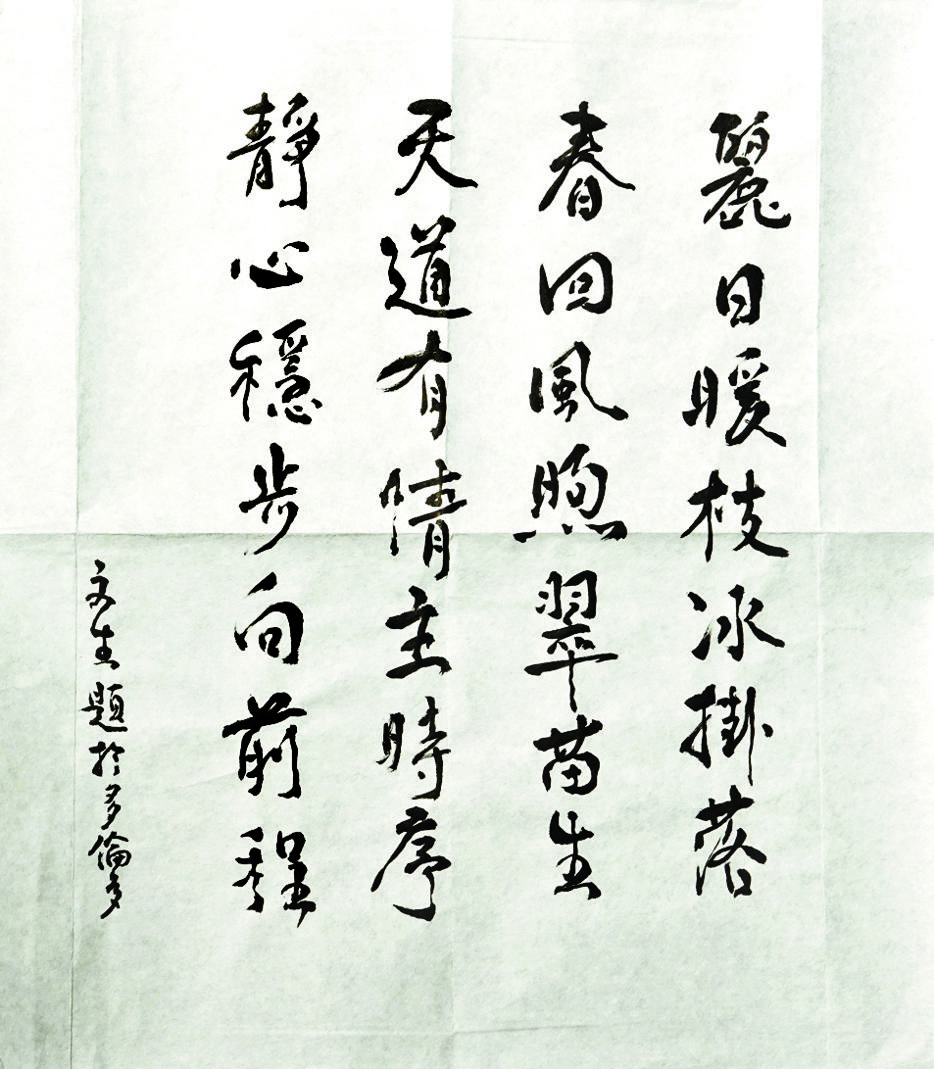 麗日暖枝冰掛落
春回風煦翠苗生
天道有情主時序
靜心穩步向前程
文生題於多倫多